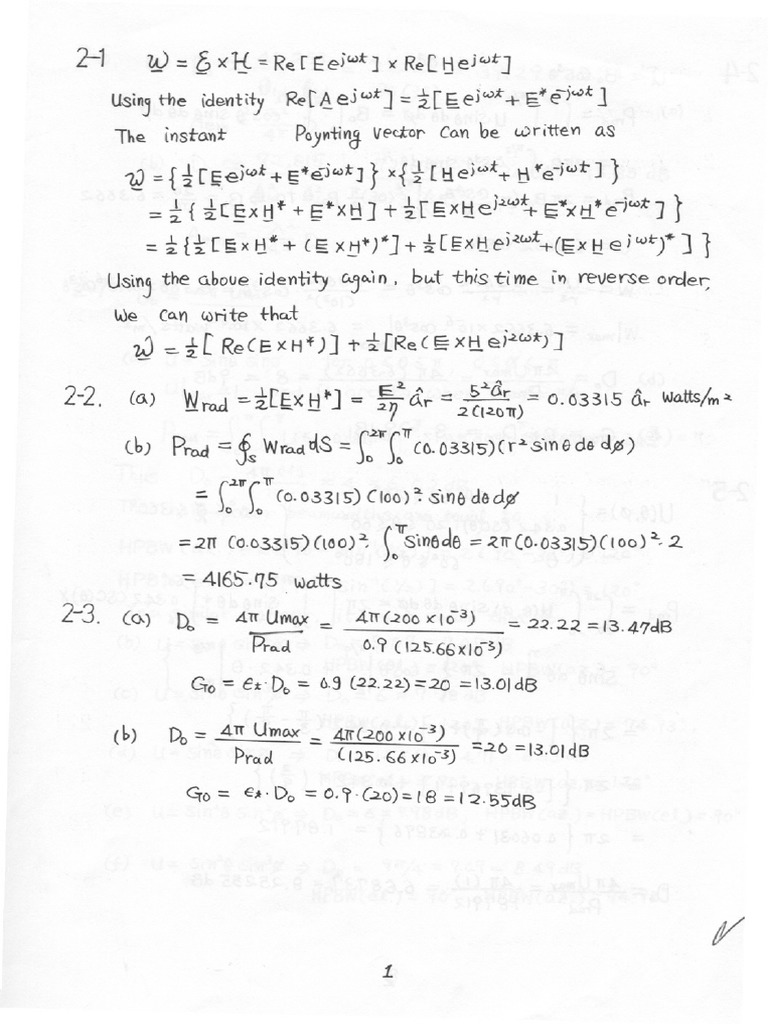 2-1 W = E × H = Re[E e^{jωt}] × Re[H e^{jωt}]
Using the identity Re[A e^{jωt}] = ½[E e^{jωt} + E* e^{-jωt}]
The instant Poynting vector can be written as
W = {½[E e^{jωt} + E* e^{-jωt}]} × {½[H e^{jωt} + H* e^{-jωt}]}
= ½{½[E×H* + E*×H] + ½[E×H e^{j2ωt} + E*×H* e^{-jωt}]}
= ½{½[E×H* + (E×H*)*] + ½[E×H e^{j2ωt} + (E×H e^{jωt})*]}
Using the above identity again, but this time in reverse order,
We can write that
W = ½[Re(E×H*)] + ½[Re(E×H e^{j2ωt})]
2-2. (a) Wrad = ½[E×H*] = E²/2η âr = 5²âr/2(120π) = 0.03315 âr Watts/m²
(b) Prad = ∮s Wrad dS = ∫₀^{2π}∫₀^{π} (0.03315)(r² sinθ dθ dø)
= ∫₀^{2π}∫₀^{π} (0.03315)(100)² sinθ dθ dø
= 2π (0.03315)(100)²· ∫₀^{π} sinθdθ = 2π(0.03315)(100)²·2
= 4165.75 watts
2-3. (a) D₀ = 4π Umax/Prad = 4π(200×10⁻³)/0.9(125.66×10⁻³) = 22.22 = 13.47dB
G₀ = et·D₀ = 0.9 (22.22) = 20 = 13.01dB
(b) D₀ = 4π Umax/Prad = 4π(200×10⁻³)/(125.66×10⁻³) = 20 = 13.01dB
G₀ = et·D₀ = 0.9·(20) = 18 = 12.55dB
1